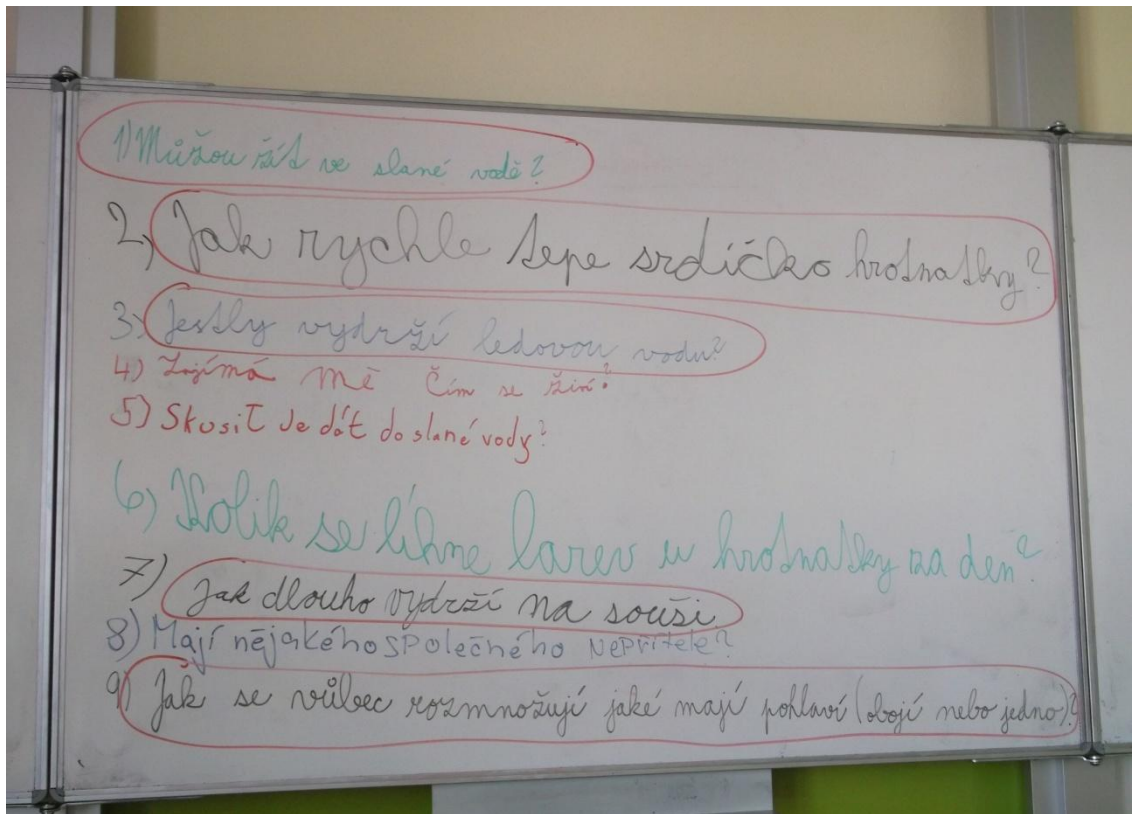 1) Můžou žít ve slané vodě?
2) Jak rychle tepe srdíčko hrotnatky?
3) Jestly vydrží ledovou vodu?
4) Zajímá mě čím se živí?
5) Skusit je dát do slané vody?
6) Kolik se líhne larev u hrotnatky za den?
7) Jak dlouho vydrží na souši
8) Mají nějakého společného nepřítele?
9) Jak se vůbec rozmnožují jaké mají pohlaví (obojí nebo jedno)?